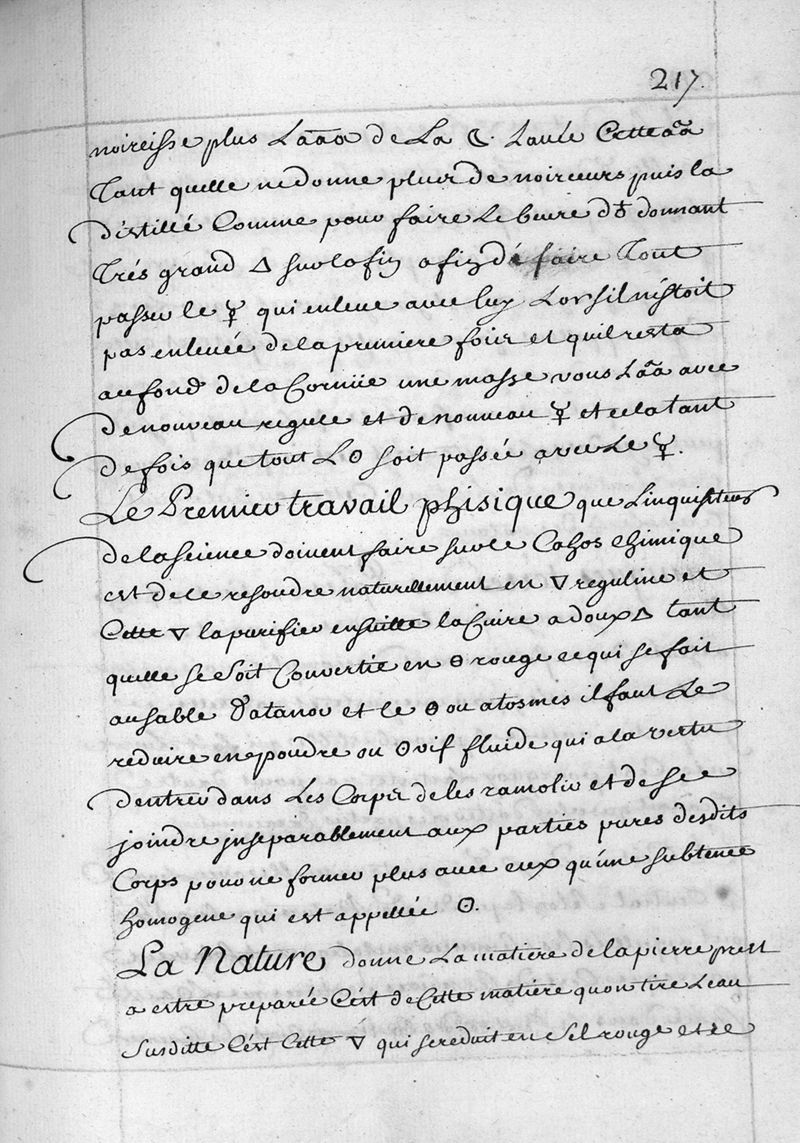 217.
noircisse plus Laaa de La ☾. Lavée Cette aa
Tant quelle ne donne plus de noirceurs puis la
distillé Comme pour faire Le beure d♁ donnant
Trés grand △ sur la fin afin dé faire Tout
passer le ☿ qui enleve avec luy Lor sil nestoit
pas enlevée de la premiere fois et quil resta
au fond de la Cornüe une masse vous Laa avec
de nouveau regule et de nouveau ☿ et cela tant
de fois que tout L☉ soit passée avec Le ☿.
Le Premier travail phisique que Linquisiteurs
de la science doivent faire sur le Cahos chimique
est de le resoudre naturellement en ▽ reguline et
Cette ▽ la purifier ensuitte la Cuire a doux △ tant
quelle se soit Convertie en ⊖ rouge ce qui se fait
au sable Datanor et le ⊖ ou atosmes il faut Le
reduire en poudre ou ☉ vif fluide qui a la vertu
dentrer dans Les Corps de les ramolir et de see
joindre jnseparablement aux parties pures desdits
Corps pour ne former plus avec eux qu'une subtence
homogene qui est appellée ☉.
La Nature donne La matiere de la pierre prest
a estre preparée Cést de Cette matiére quon tire Leau
Susditte Cést Cette ▽ qui se reduit en Sel rouge et ce